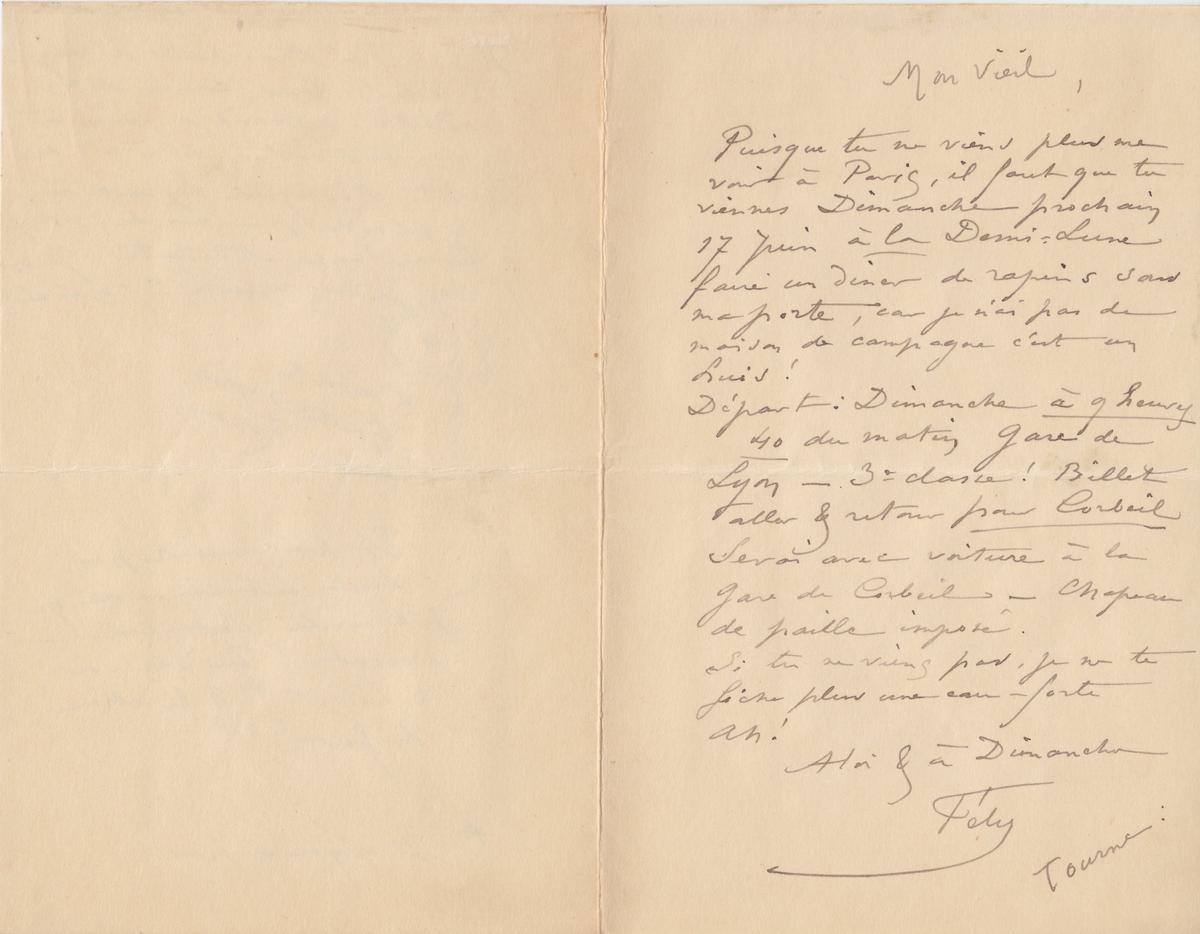 Mon Vieil,
Puisque tu ne viens plus me
voir à Paris, il faut que tu
viennes Dimanche prochain
17 Juin à la Demi-Lune
faire un diner de rapins sous
ma porte, car je n'ai pas de
maison de campagne c'est un
Départ : Dimanche à 9 heures
40 du matin Gare de
Lyon — 3e classe ! Billet
aller & retour pour Corbeil
Serai avec voiture à la
Gare de Corbeil — Chapeau
de paille imposé.
Si tu ne viens pas, je ne te
fiche plus une eau-forte
Ah !
A toi & à Dimanche
Fély
Tourne :